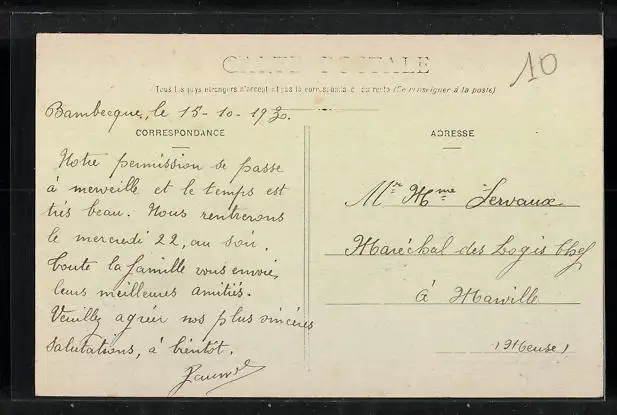 CARTE POSTALE
10
Tous les pays étrangers n'acceptent pas la correspondance au recto (Se renseigner à la poste)
Bambecque, le 15-10-1930.
CORRESPONDANCE
Notre permission se passe
à merveille et le temps est
très beau. Nous rentrerons
le mercredi 22, au soir.
Toute la famille vous envoie,
leurs meilleures amitiés.
Veuillez agréer nos plus sincères
salutations, à bientôt.
ADRESSE
Mr Mme Servaux
Maréchal des Logis Chef
à Marville
(Meuse)